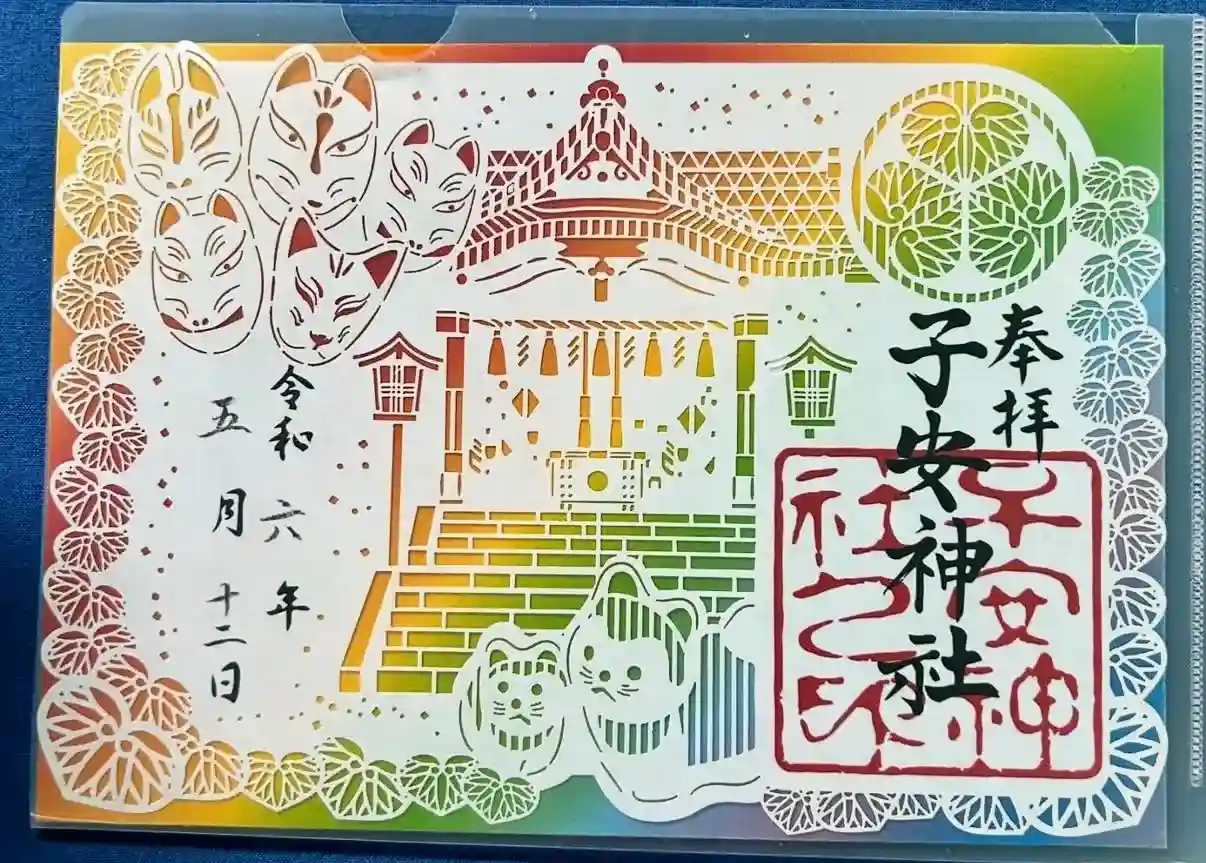 奉拝
子安神社
子安神社之印
令和六年
五月十二日